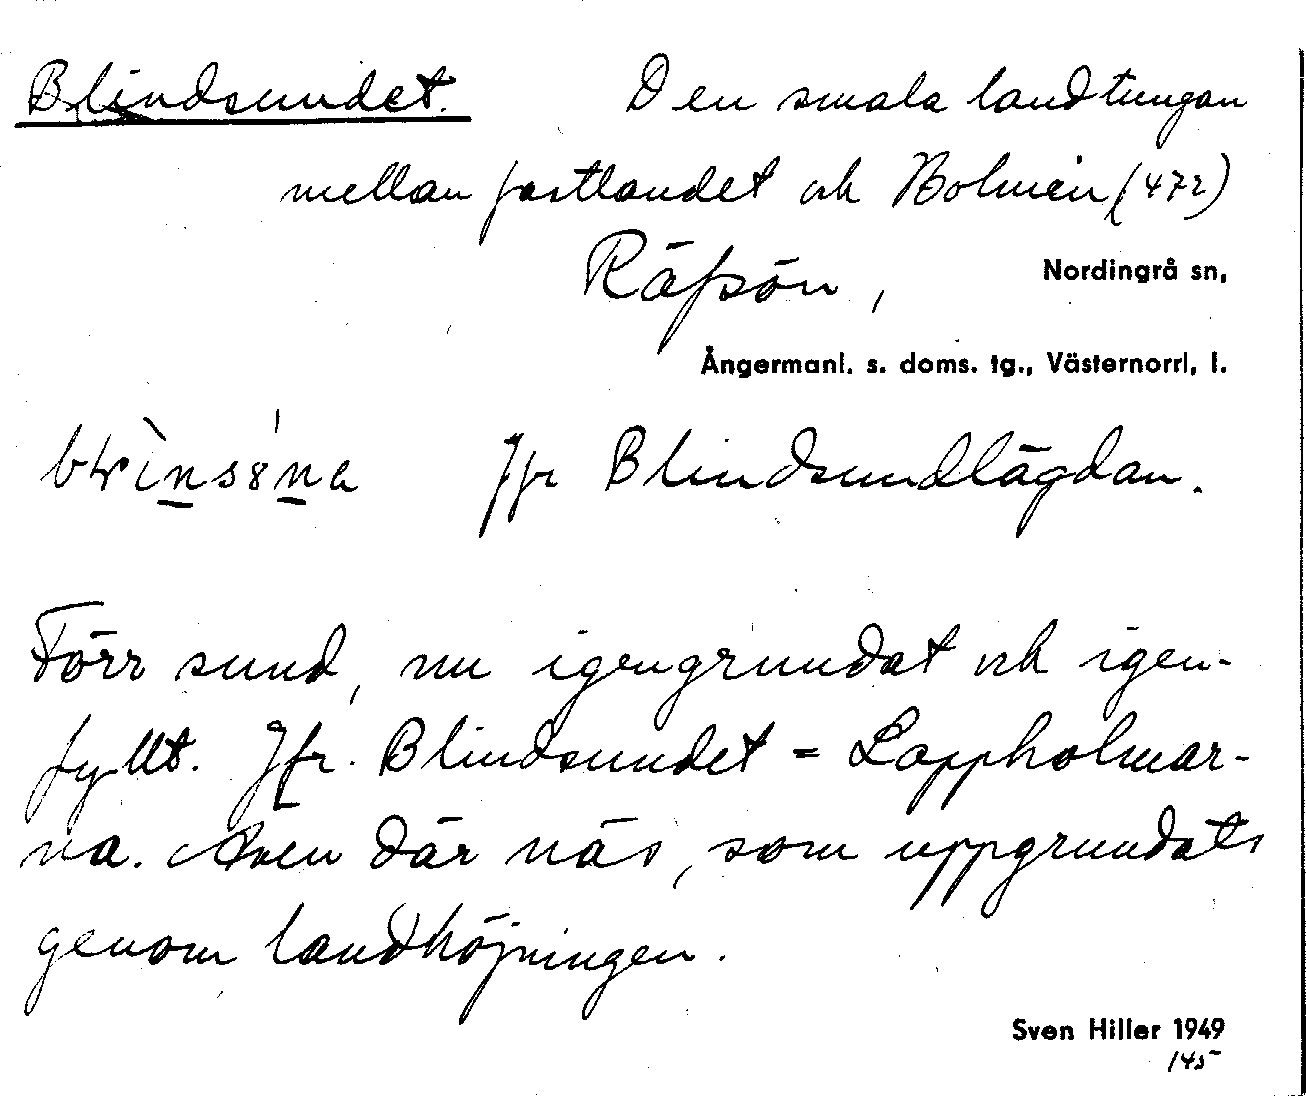 Blindsundet. Den smala landtungan
mellan fastlandet och Bolmen (472)
Räfsön, Nordingrå sn,
Ångermanl. s. doms. tg., Västernorrl. l.
Jfr Blindsundlägdan.
Förr sund, nu igengrundat och igen-
fyllt. Jfr. Blindsundet = Lappholmar-
na. Även där näs, som uppgrundats
genom landhöjningen.
Sven Hiller 1949
145